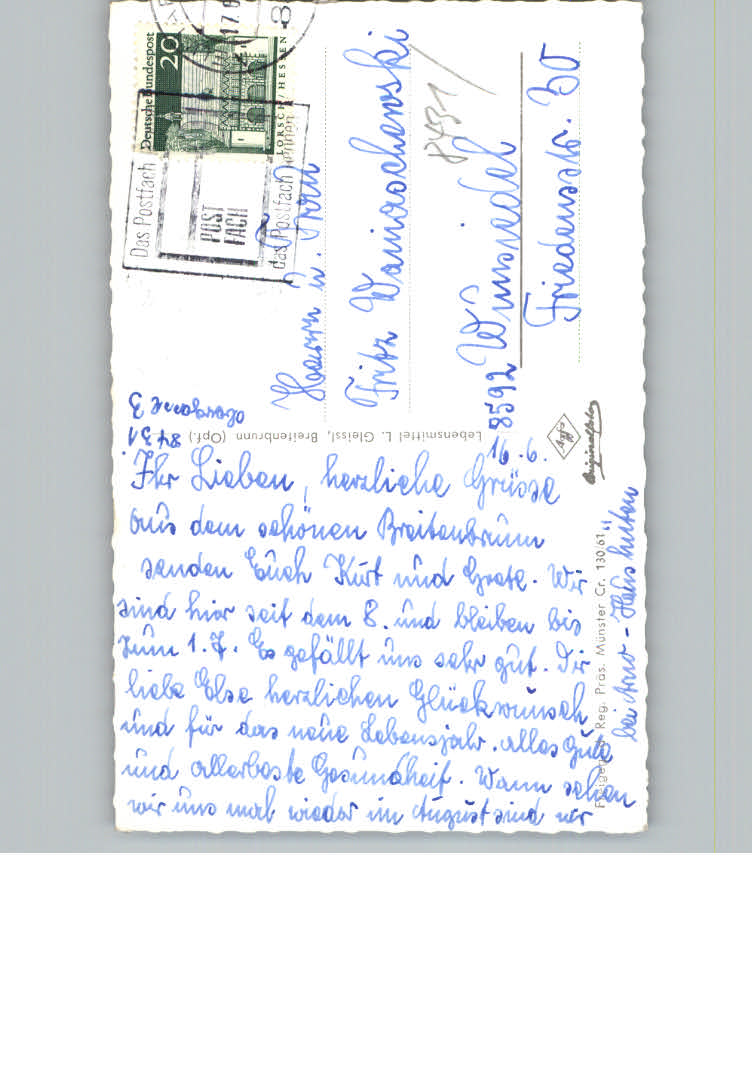 16.6.
Ihr Lieben, herzliche Grüsse
aus dem schönen Breitenbrunn
senden Euch Kurt und Gretl. Wir
sind hier seit dem 8. und bleiben bis
zum 1.7. Es gefällt uns sehr gut. Dir
liebe Else herzlichen Glückwunsch
und für das neue Lebensjahr. alles Gute
und allerbeste Gesundheit. Wann sehen
wir uns mal wieder im August sind wir
bei
8431
Lebensmittel L. Gleissl, Breitenbrunn (Opf.)
Reg. Präs. Münster Cr. 130.61
Agfa
Originalfoto
Deutsche Bundespost
20
LORSCH/HESSEN
17.
8
Das Postfach
POST
FACH
das Postfach
Herrn u. Frau
Fritz
8431
8592 Wunsiedel
Friedensstr. 30